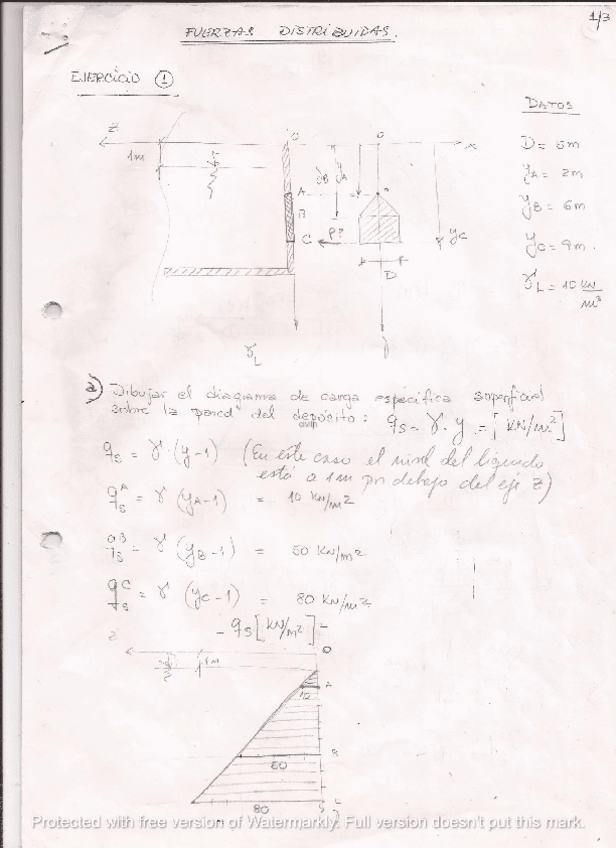 1/3
FUERZAS DISTRIBUIDAS.
EJERCICIO 1
DATOS
D = 5m
yA = 2m
yB = 6m
yC = 9m.
γL = 10 KN/m³
Z
1m
O
O
x
yB
yA
A
B
C
P?
yC
D
γL
y
a) Dibujar el diagrama de carga especifica superficial
sobre la pared del depósito: qs = γ · y = [KN/m²]
qs = γ · (y-1) (En este caso el nivel del liquido
está a 1m por debajo del eje Z)
qsA = γ (yA-1) = 10 KN/m²
qsB = γ (yB-1) = 50 KN/m²
qsC = γ (yC-1) = 80 KN/m²
- qs [KN/m²]
1m
10
80
Protected with free version of Watermarkly. Full version doesn't put this mark.